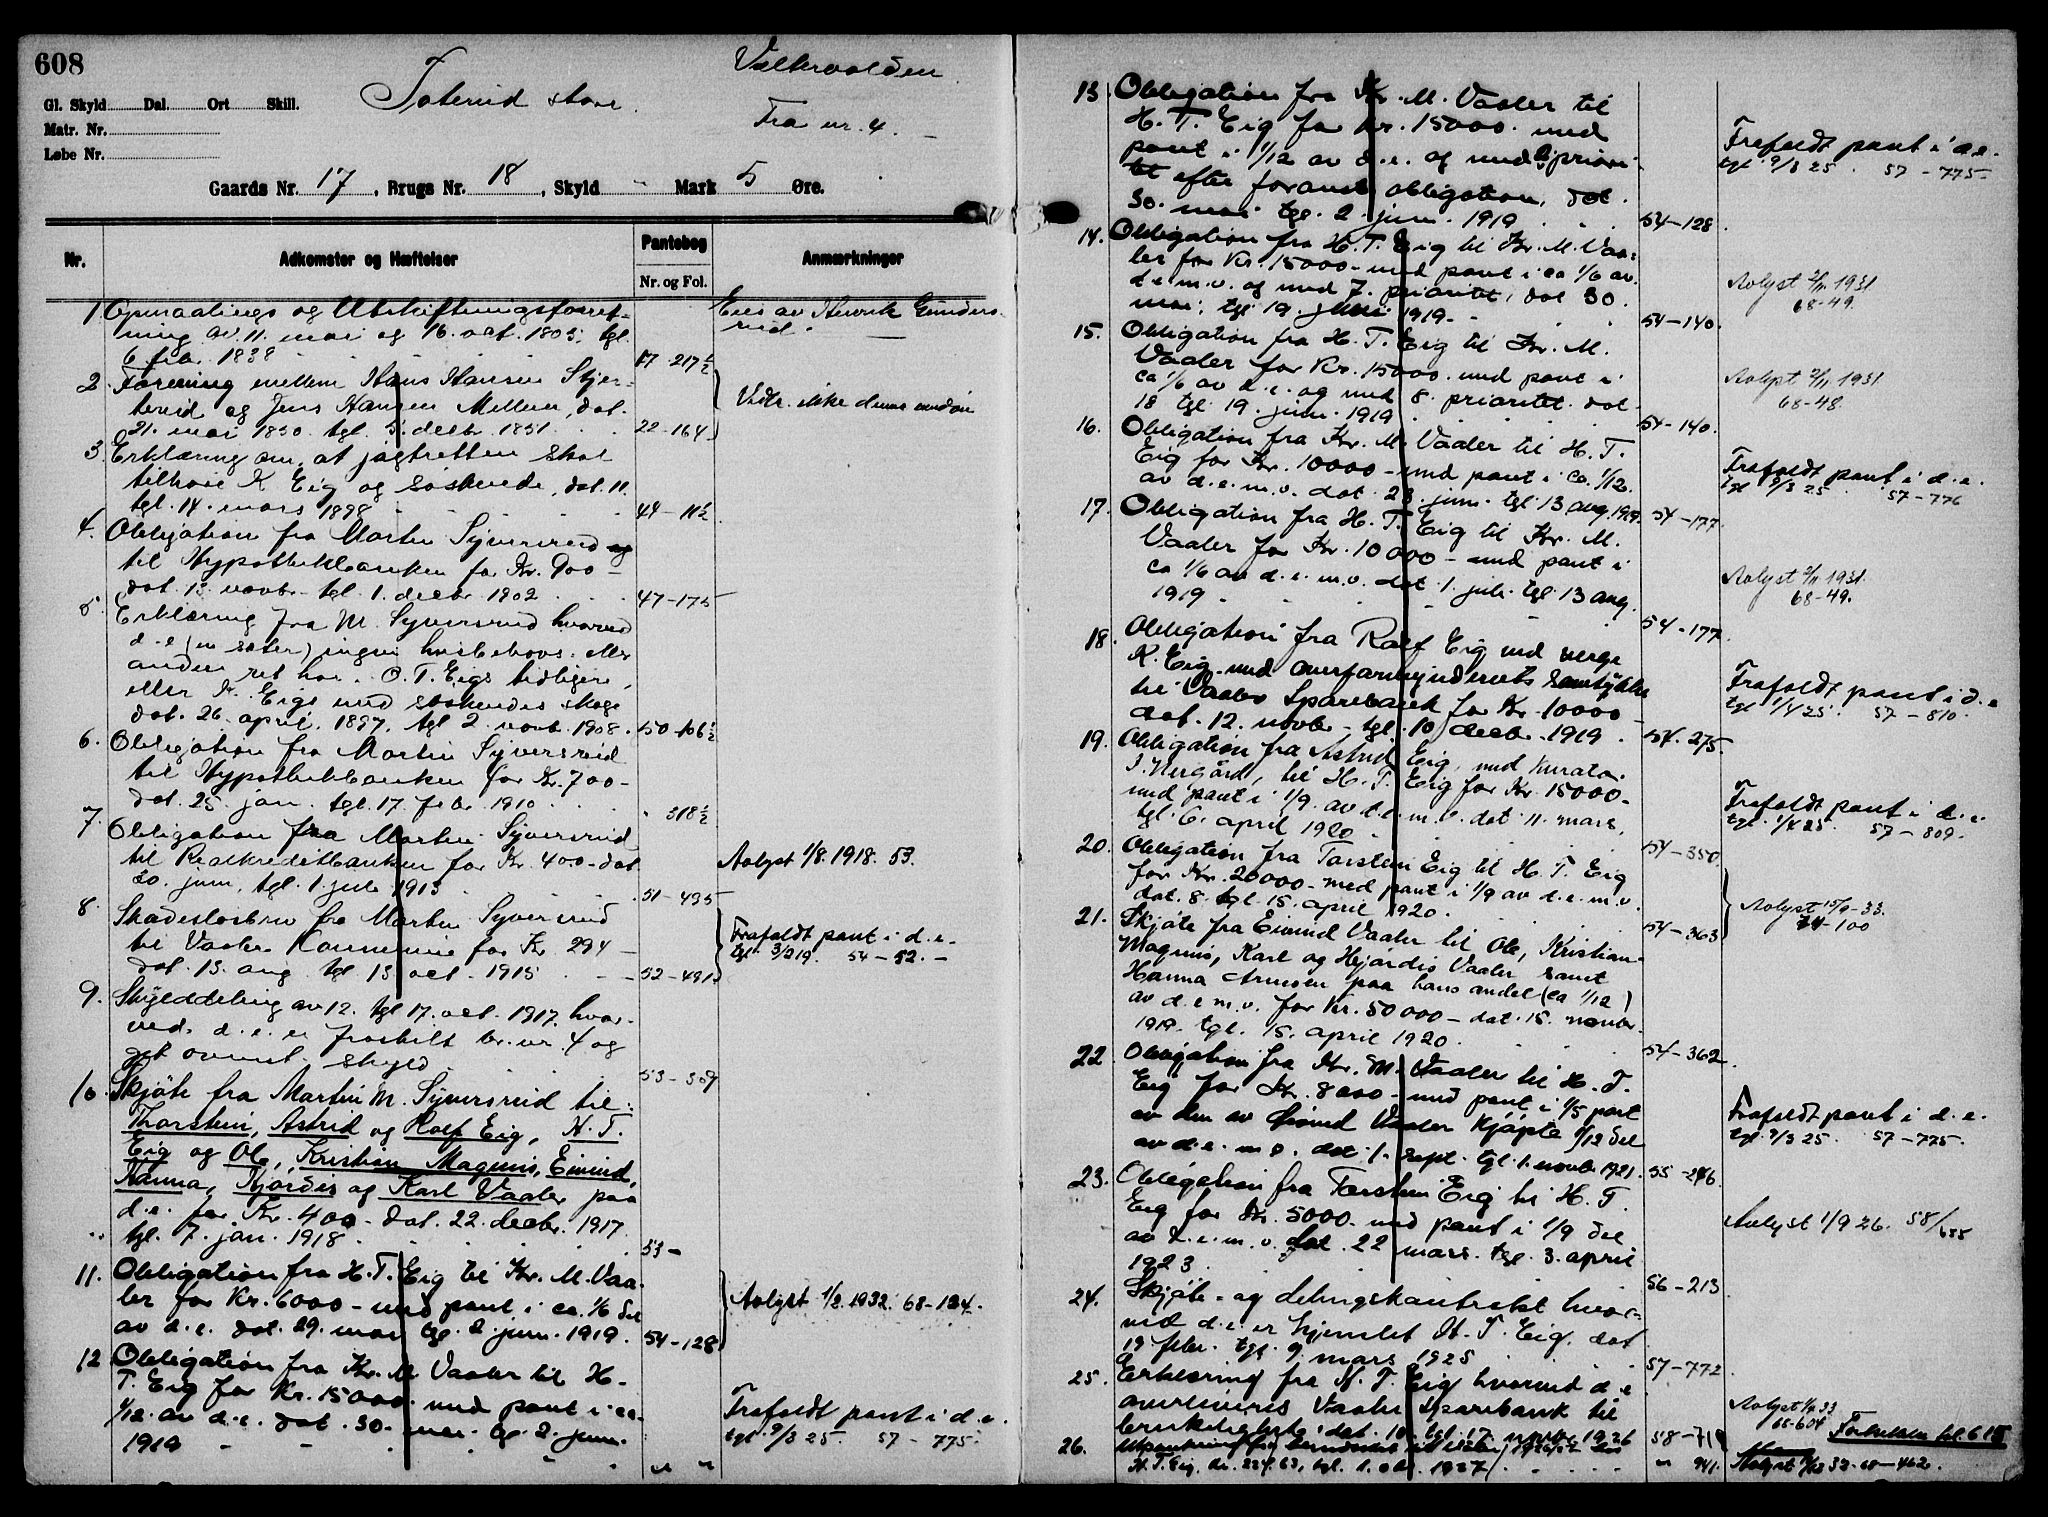 608
Toterud store
Vælkervolden
Fra nr. 4. -
Gl. Skyld Dal. Ort Skill.
Matr. Nr.
Løbe Nr.
Gaards Nr. 17, Brugs Nr. 18, Skyld - Mark 5 Øre.
Nr. Adkomster og Hæftelser Pantebog Nr. og Fol. Anmærkninger
1. Opmaalings og Utskiftningsforret-
ning av 11. mai og 16. oct. 1803; tgl.
6 fra. 1838 17-217½
Eies av Henrik Gunders-
rud.
2. Forening mellem Hans Hansen Stjer-
terud og Jens Hansen Mellem, dat.
21. mai 1830. tgl. 5. decbr. 1831 22-164
Vedr. ikke denne eiendom
3. Erklæring om, at jagtretten skal
tilhøre K Eig og søskende, dat. 11.
tgl. 14. mars 1898 44-11½
4. Obligation fra Martin Syversrud
til Hypothekbanken for Kr. 900-
dat. 13. novbr. tgl. 1. decbr. 1902 47-175
5. Erklæring fra M. Syversrud hvorved
d.e (en sæter) ingen husbehovs- eller
anden ret har i O. T. Eigs tidligere,
eller K. Eigs med søskendes skoge
dat. 26. april 1897. tgl 2. novb. 1908. 50-106½
6. Obligation fra Martin Syversrud
til Hypothekbanken for Kr. 700-
dat. 25. jan. tgl. 17. febr. 1910 " 318½
7. Obligation fra Martin Syversrud
til Realkreditbanken for Kr. 400- dat
30. juni, tgl. 1. juli 1913 51-495
Avlyst 1/8. 1918. 53.
8. Skadesløsbrev fra Martin Syversrud
til Vaaler Kommune for Kr. 294-
dat. 13. aug. tgl 13 oct. 1915 52-491
Frafaldt pant i d.e-
tgl. 3/2 19. 54-52.-
9. Skylddeling av 12. tgl 17. oct. 1917, hvor-
ved d.e. er fraskilt br. nr. 4 og
git ovenst. skyld 53-309
10. Skjøte fra Martin M. Syversrud til:
Thorstein, Astrid og Rolf Eig, H. T.
Eig og Ole, Kristian Magnus, Eivind,
Hanna, Hjørdis og Karl Vaaler paa
d.e. for Kr. 400- dat. 22. decbr. 1917
tgl. 7. jan. 1918 53-
11. Obligation fra H. T. Eig til Kr. M. Vaa-
ler for Kr. 6000- med pant i ca. 1/6 del
av d.e. dat. 29. mai tgl. 2. juni. 1919. 54-128
Avlyst 1/2. 1932. 68-124.
12 Obligation fra Kr. M Vaaler til H-
T. Eig for Kr. 15000. med pant i ca.
1/12. av d.e. dat. 30. mai. tgl. 2. juni.
1919 " "
Frafaldt pant i d.e.
tgl. 9/3 25. 57-775.
13 Obligation fra Kr. M. Vaaler til
H. T. Eig for Kr. 15000. med
pant i 1/12 av d.e. og med priori-
tet efter foranst. obligation, dat.
30. mai tgl. 2. juni. 1919 54-128
Frafaldt pant i d.e.
tgl 9/3 25. 57-775-
14. Obligation fra H. T. Eig til Kr. M. Vaa-
ler for Kr. 15000- med pant i ca 1/6 av
d.e. m.v. og med 7. prioritet, dat 30.
mai; tgl. 19. juni 1919- 54-140.
Avlyst 2/11 1931
68-49.
15. Obligation fra H. T. Eig til Kr. M.
Vaaler for Kr. 15000. med pant i
ca 1/6 av d.e. og med 8. prioritet. dat.
18 tgl. 19. juni. 1919 54-140.
Avlyst 2/11 1931
68-48.
16. Obligation fra Kr. M. Vaaler til H. T.
Eig for Kr. 10000- med pant i ca. 1/12.
av d.e. m.v. dat. 23. juni. tgl 13 aug. 1919. 54-177.
Frafaldt pant i d.e.
tgl 9/3 25. 57-776
17. Obligation fra H. T. Eig til Kr. M.
Vaaler for Kr. 10000- med pant i
ca 1/6 av d.e. m.v. dat 1. juli. tgl. 13 aug.
1919 54-177
Avlyst 2/11 1931.
68-49.
18. Obligation fra Rolf Eig ved verge
K. Eig med overformynderiets samtykke
til Vaaler Sparebank for Kr. 10000-
dat. 12. novbr. tgl. 10 decbr. 1919. 54-275
Frafaldt pant i d.e
tgl 1/4 25. 57-810.
19. Obligation fra Astrid Eig, med kurator
J. Nergård, til H. T. Eig for Kr. 15000-
med pant i 1/9. av d.e. m.v. dat 11. mars,
tgl. 6. april 1920 54-350
Frafaldt pant i d.e.
tgl. 1/4 25. 57-809.
20. Obligation fra Torstein Eig til H. T. Eig
for Kr. 20000- med pant i 1/9 av d.e. m.v.
dat. 8. tgl. 15. april 1920. 54-363
Avlyst 15/9-33.
74-100
21. Skjøte fra Eivind Vaaler til Ole, Kristian
Magnus, Karl og Hjørdis Vaaler samt
Hanna Arnesen paa hans andel (ca 1/12)
av d.e m.v. for Kr. 50000- dat. 15. novbr.
1919. tgl. 15. april 1920. 54-362
22. Obligation fra Kr. M. Vaaler til H. T.
Eig for Kr. 8000- med pant i 1/5 part
av den av Eivind Vaaler kjøpte 1/12 del
av d.e. m.v. dat. 1. sept. tgl. 1. novbr 1921. 55-246.
Frafaldt pant i d.e.
tgl. 9/3 25. 57-775.
23. Obligation fra Torstein Eig til H. T.
Eig for Kr. 5000. med pant i 1/9 del
av d.e. m.v. dat. 22 mars. tgl. 3. april
1923 56-213
Avlyst 1/9 26. 58/655
24. Skjøte- og delingskontrakt hvor-
ved d.e. er hjemlet H. T. Eig. dat
19 febr. tgl. 9. mars 1925 57-772
25. Erklæring fra H. T. Eig hvorved d.e
overleveres Vaaler Sparebank til
brukelighet, dat. 10. tgl. 17. novbr. 1926 58-71
Avlyst 33
65-604
Fortsættes fol. 615
26.
H. T. Eig, kr. 224.63, tgl. 1. 1927 " 941.
Avlyst 32-68-462.